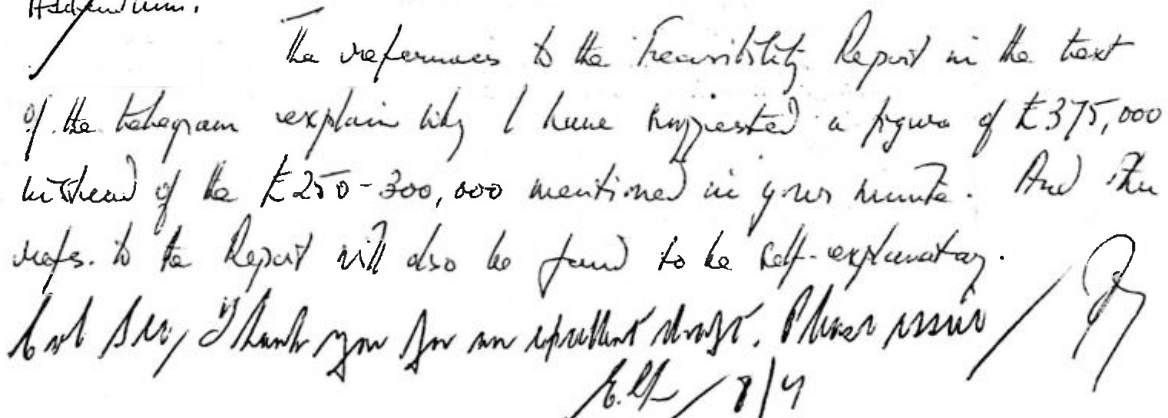 Addendum.
The references to the Feasibility Report in the text
of the telegram explain why I have suggested a figure of £375,000
instead of the £250-300,000 mentioned in your minute. And the
refs. to the Report will also be found to be self-explanatory.
Thank you for an excellent draft. Please issue
8/4